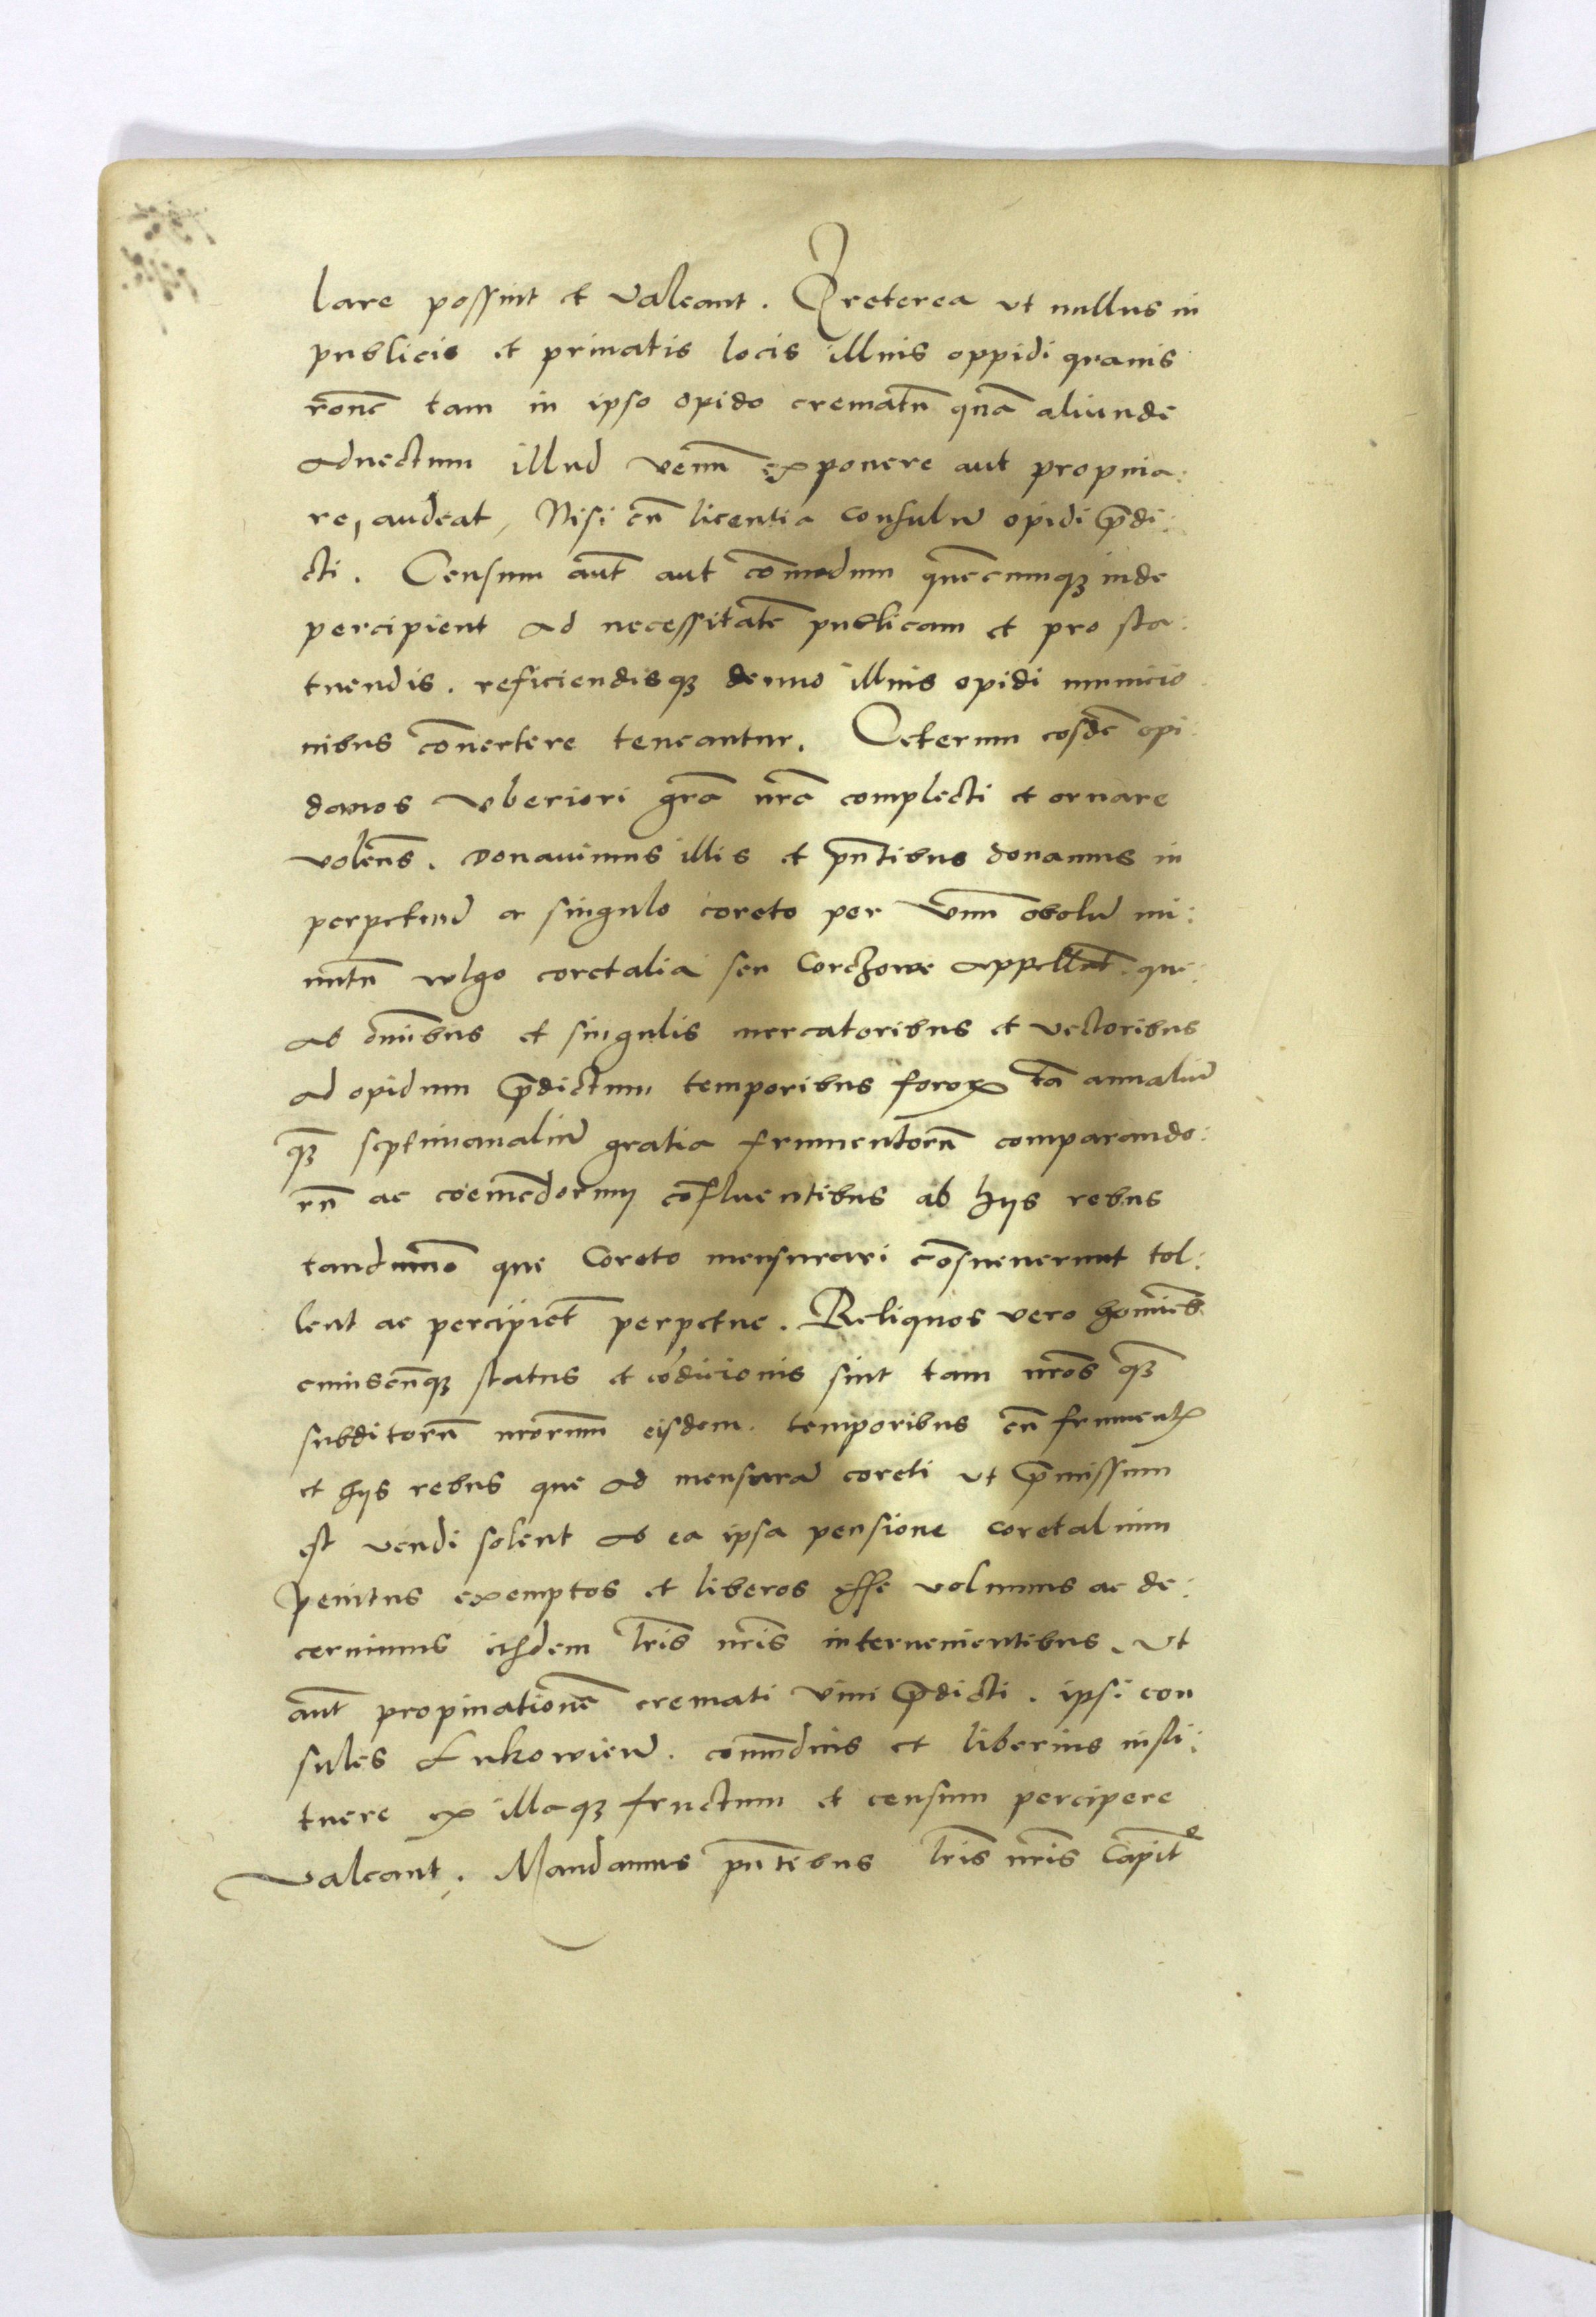 lare possint et valeant. Preterea ut nullus in
publicis et privatis locis illius oppidi quavis
rõne tam in ipso opido crematũ quã aliunde
advectum illud venũ exponere aut propina:
re, audeat, Nisi cũ licentia consulũ opidi p̃di:
cti. Censum aũt aut cõmodum quẽcumq3 inde
percipient ad necessitatẽ publicam et pro sta:
tuendis. reficiendisq3 denuo illius opidi municio
nibus cõvertere teneantur. Ceterum eosdẽ opi:
danos uberiori grã nrã complecti et ornare
volẽns. donavimus illis et pñtibus donamus in
perpetuũ a singulo coreto per unũ obolũ mi:
nutũ wlgo coretalia seu Corczowe appellat̃. que
ab omĩbus et singulis mercatoribus et vectoribus
ad opidum p̃dictum temporibus foroꝝ tã annaliũ
q3 septimanaliũ gratia frumentorũ comparando:
rũ ac coemẽdorum cõfluentibus ab hijs rebus
tandũmo que Coreto mensurari cõsueverunt tol:
lent ac percipiẽt perpetue. Reliquos vero homĩes
cuiuscũq3 status et cõdicionis sint tam nrõs q3
subditorũ nrorum eisdem temporibus cũ frumentꝭ
et hijs rebus que ad mensurã coreti ut p̃missum
est vendi solent ab ea ipsa pensione coretalium
penitus exemptos et liberos esse volumus ac de:
cernimus iisdem lrĩs nrĩs intervenientibus. Ut
aũt propinationẽ cremati vini p̃dicti. ipsi con
sules Lukowieñ. commodius et liberius insti:
tuere ex illaq3 fructum et censum percipere
valeant. Mandamus pñtibus lrĩs nrĩs Capit̃e